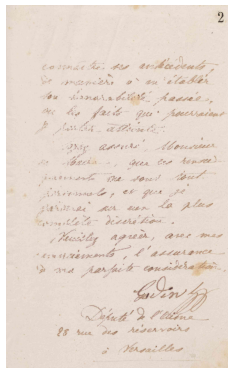 2
connaître ses antécédents,
de manière à en établir
son honorabilité passée,
ou les faits qui pourraient
y porter atteinte.
assuré, Monsieur
le Maire, que ces rensei
gnements me sont tout
personnels, et que je
sur eux la plus
complète discrétion.
Veuillez agréer, avec mes
remerciements, l'assurance
de ma parfaite considération.
Godin
Député de l'Aisne
28 rue des réservoirs
à Versailles